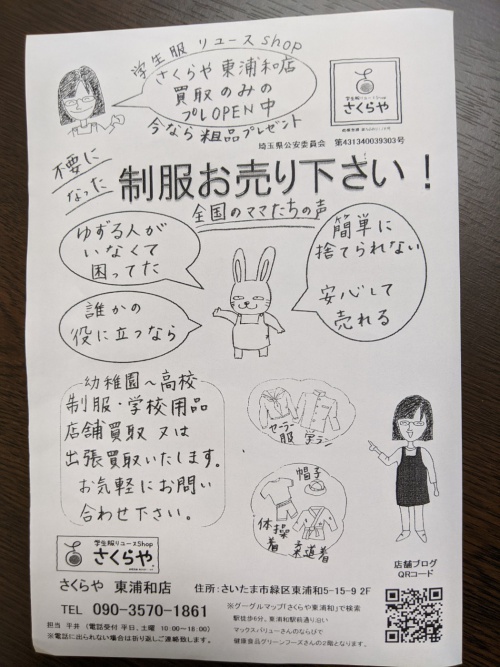 学生服リユースshop
さくらや 東浦和店
買取のみの
プレOPEN中
今なら粗品プレゼント
学生服リユースShop
さくらや
埼玉県公安委員会 第431340039303号
不要に
なった
制服お売り下さい!
全国のママたちの声
ゆずる人が
いなくて
困ってた
簡単に
捨てられない
安心して
売れる
誰かの
役に立つなら
幼稚園~高校
制服・学校用品
店舗買取又は
出張買取いたします。
お気軽にお問い
合わせ下さい。
セーラー服
学ラン
帽子
体操着
柔道着
学生服リユースShop
さくらや
店舗ブログ
QRコード
さくらや 東浦和店 住所:さいたま市緑区東浦和5-15-9 2F
TEL 090-3570-1861
※グーグルマップ「さくらや東浦和」で検索
駅徒歩6分。東浦和駅前通り沿い
マックスバリューさんのならびで
健康食品グリーンフーズさんの2階となります。
担当 平井 (電話受付 平日、土曜 10:00~16:00)
※電話に出られない場合は折り返しご連絡致します。